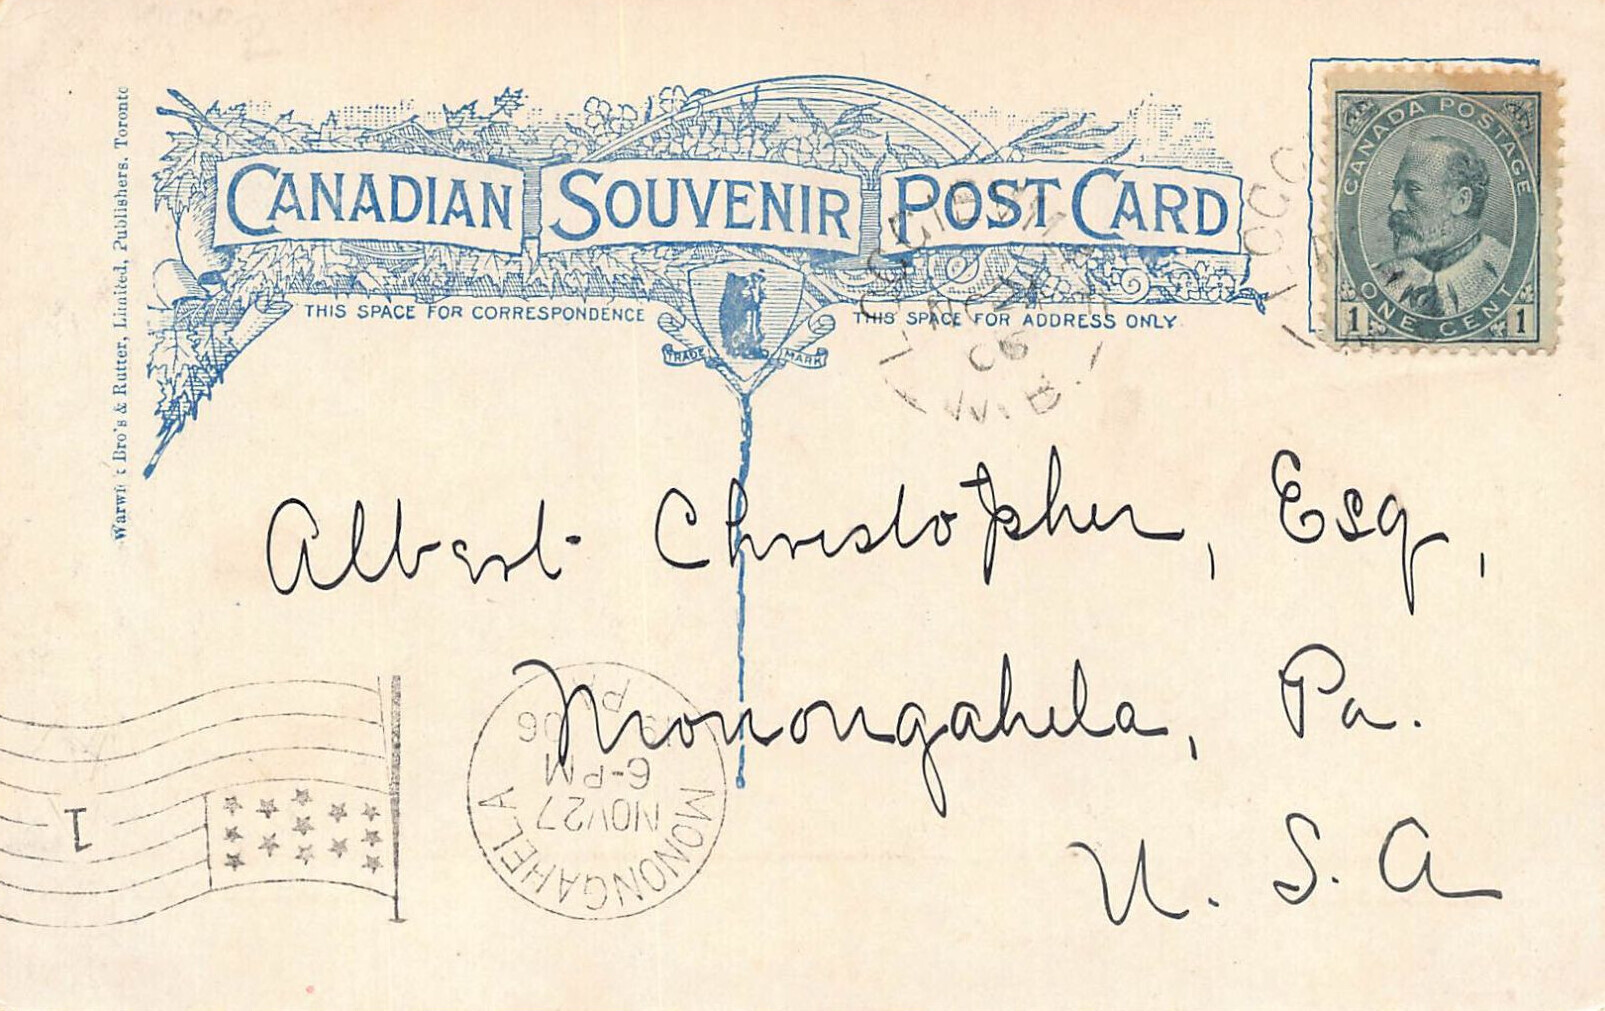 CANADIAN SOUVENIR POST CARD
THIS SPACE FOR CORRESPONDENCE
THIS SPACE FOR ADDRESS ONLY
TRADE MARK
Bro's & Rutter, Limited, Publishers. Toronto
CANADA POSTAGE
ONE CENT
1 1
NOV
06
N.B.
Albert Christopher, Esq,
Monongahela, Pa.
U. S. A
MONONGAHELA
NOV 27
6-PM
06
PA
1